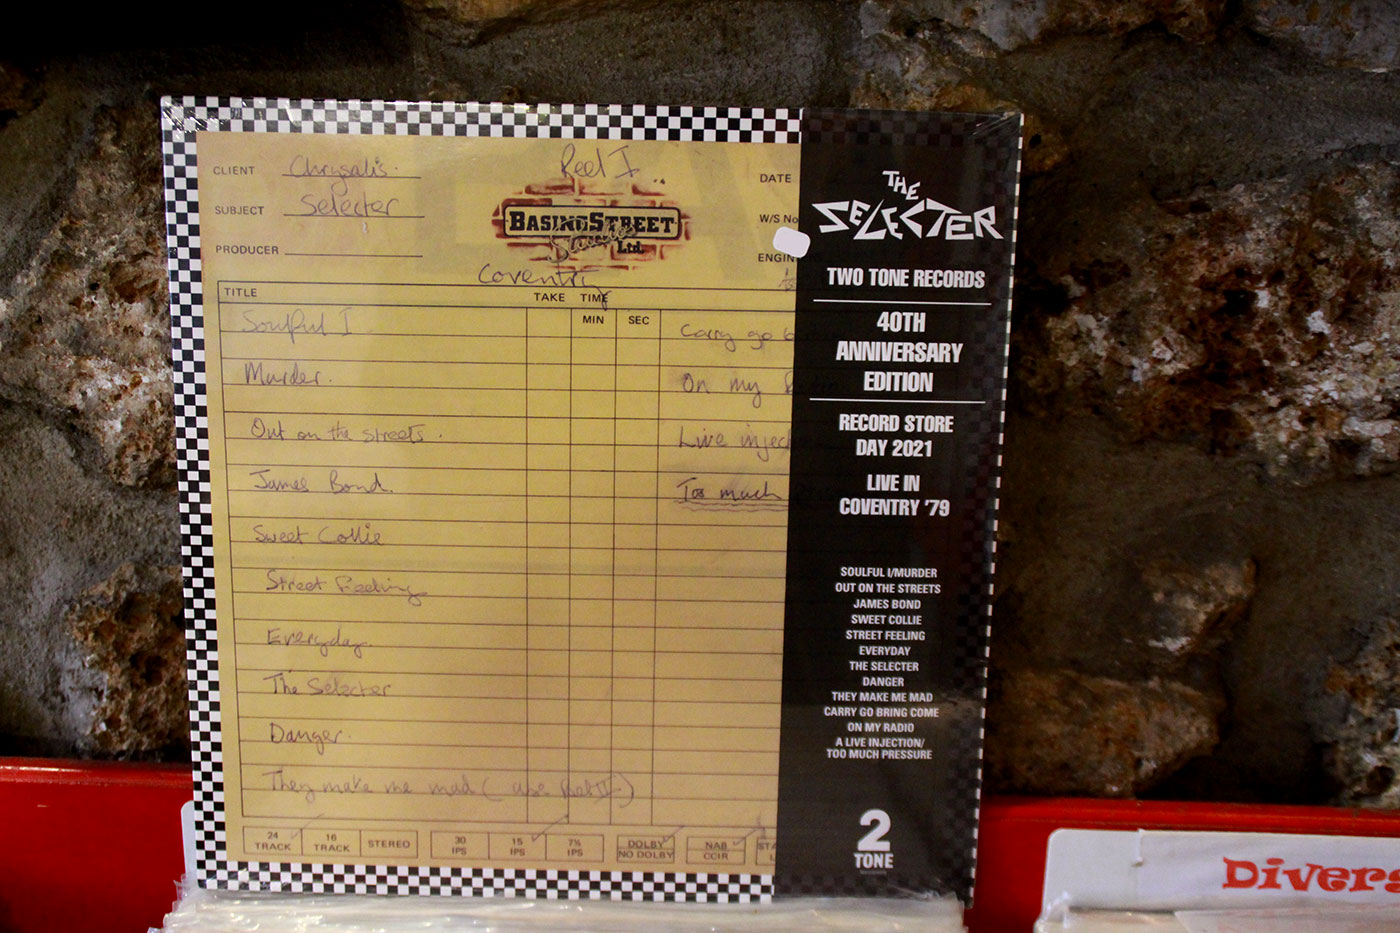 CLIENT Chrysalis.
Reel I
DATE
SUBJECT Selecter
BASING STREET
Studios
Ltd.
W/S No
PRODUCER
ENGIN
Coventry
TITLE TAKE TIME
MIN SEC
Soulful I
Carry go
Murder.
On my
Out on the streets.
Live injec
James Bond.
Too much
Sweet Collie
Street Feeling
Everyday
The Selecter
Danger.
They make me mad (use Reel II)
24 TRACK
16 TRACK
STEREO
30 IPS
15 IPS
7½ IPS
DOLBY
NO DOLBY
NAB
CCIR
THE
SELECTER
TWO TONE RECORDS
40TH
ANNIVERSARY
EDITION
RECORD STORE
DAY 2021
LIVE IN
COVENTRY '79
SOULFUL I/MURDER
OUT ON THE STREETS
JAMES BOND
SWEET COLLIE
STREET FEELING
EVERYDAY
THE SELECTER
DANGER
THEY MAKE ME MAD
CARRY GO BRING COME
ON MY RADIO
A LIVE INJECTION/
TOO MUCH PRESSURE
2
TONE
RECORDS
Divers